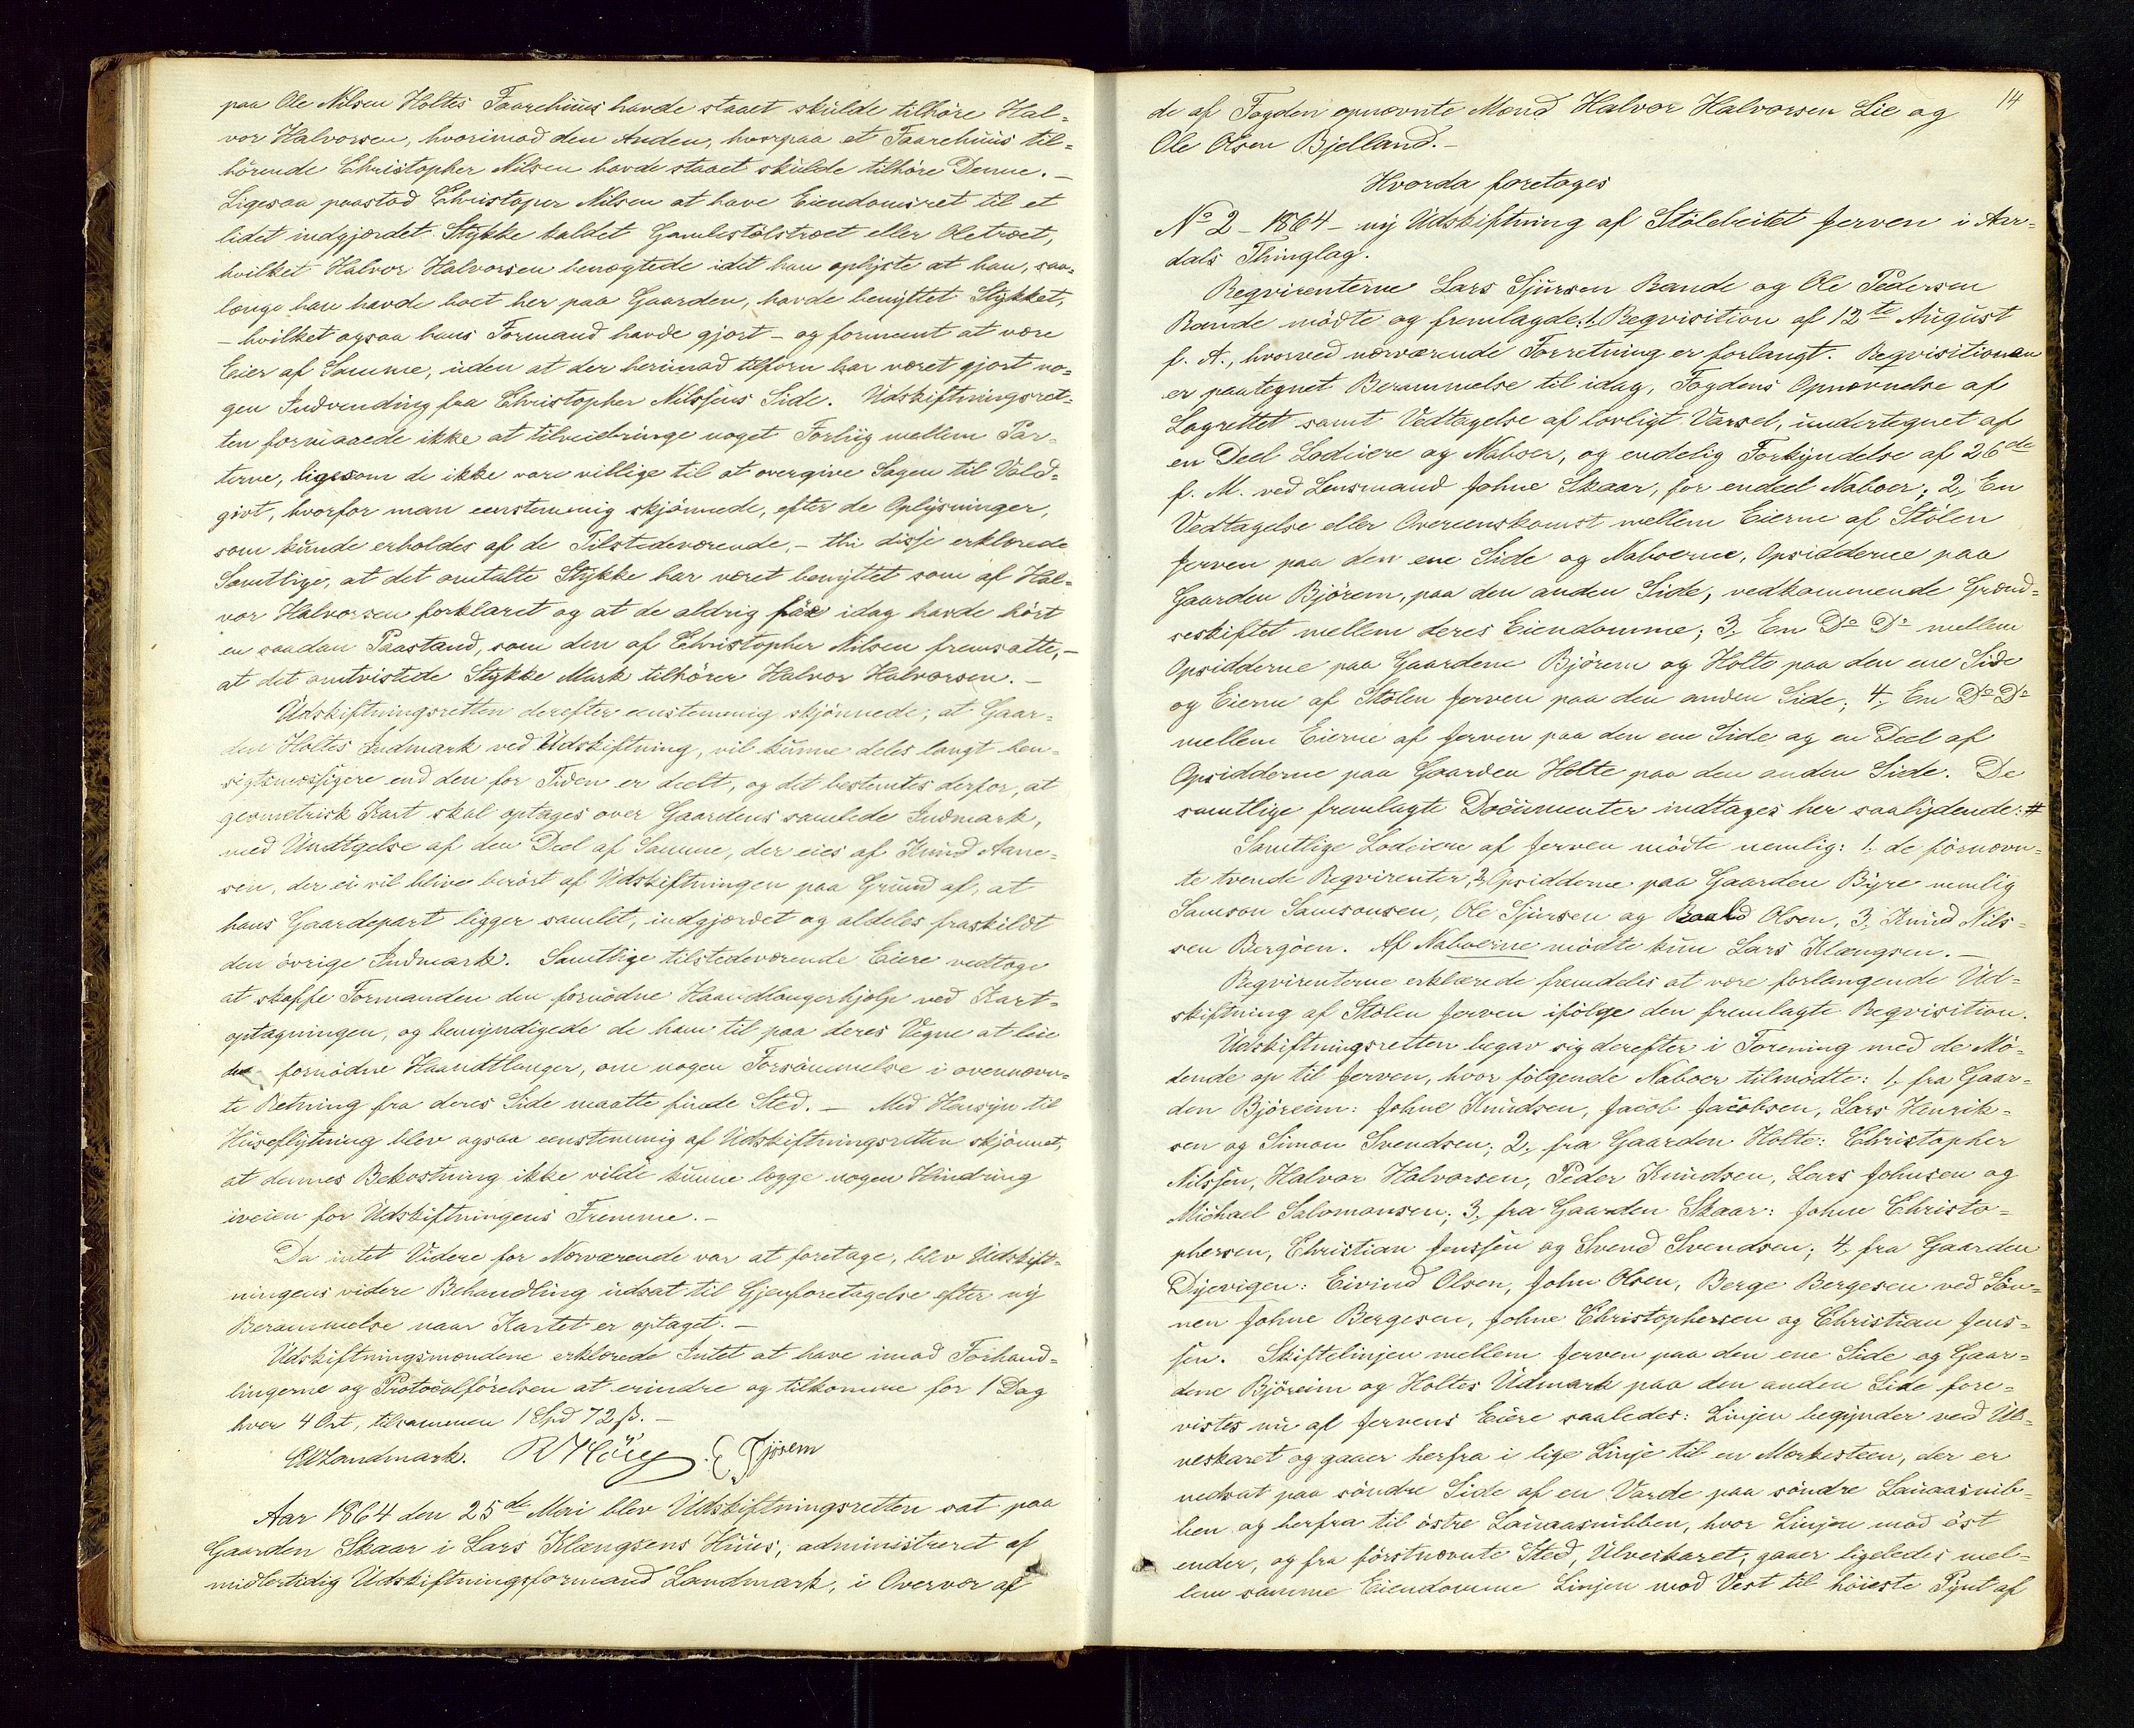 paa Ole Nilsen Holtes Faarehuus havde staaet skulde tilhöre Hal-
vor Halvorsen, hvorimod den Anden, hvorpaa et Faarehuus til-
hörende Christopher Nilsen havde staaet skulde tilhöre Denne. —
Ligesaa paastod Christoper Nilsen at have Eiendomsret til et
lidet indgjærdet Stykke kaldet Gamlestölstræet eller Oletræet,
hvilket Halvor Halvorsen benægtede idet han oplyste at han, saa-
længe han havde boet her paa Gaarden, havde benyttet Stykket,
— hvilket ogsaa hans Formand havde gjort — og formeent at være
Eier af Samme, uden at der herimod tilforn har været gjort no-
gen Indvending fra Christopher Nilssens Side. Udskiftningsret-
ten formaaede ikke at tilveiebringe noget Forliig mellem Par-
terne, ligesom de ikke vare villige til at overgive Sagen til Vold-
givt, hvorfor man eenstemmig skjönnede, efter de Oplysninger,
som kunde erholdes af de Tilstedeværende, — thi disse erklærede
Samtlige, at det omtalte Stykke har været benyttet som af Hal-
vor Halvorsen forklaret og at de aldrig för idag havde hört
en saadan Paastand, som den af Christopher Nilsen fremsatte, —
at det omtvistede Stykke Mark tilhörer Halvor Halvorsen. —
Udskiftningsretten derefter eenstemmig skjönnede, at Gaar-
den Holtes Indmark ved Udskiftning, vil kunne deles langt hen-
sigtsmæssigere end den for Tiden er deelt, og det bestemtes derfor, at
geometrisk Kart skal optages over Gaardens samlede Indmark,
med Undtagelse af den Deel af Samme, der eies af Knud Aane-
sen, der ei vil blive berört af Udskiftningen paa Grund af, at
hans Gaardepart ligger samlet, indgjærdet og aldeles fraskildt
den övrige Indmark. Samtlige tilstedeværende Eiere vedtoge
at skaffe Formanden den fornödne Haandlangerhjælp ved Kart-
optagningen, og bemyndigede de ham til paa deres Vegne at leie
den fornödne Haandtlanger, om nogen Forsömmelse i ovennævn-
te Retning fra deres Side maatte finde Sted. — Med Hensyn til
Huseflytning blev ogsaa eenstemmig af Udskiftningsretten skjönnet,
at dennes Bekostning ikke vilde kunne lægge nogen Hindring
iveien for Udskiftningens Fremme. —
Da intet Videre for Nærværende var at foretage, blev Udskift-
ningens videre Behandling udsat til Gjenforetagelse efter ny
Berammelse naar Kartet er optaget. —
Udskiftningsmændene erklærede Intet at have imod Forhand-
lingerne og Protocolförelsen at erindre og tilkomme for 1 Dag
hver 4 Ort, tilsammen 1 Spd 72 ß. —
Landmark. E Tjörem
Aar 1864 den 25de Mai blev Udskiftningsretten sat paa
Gaarden Skaar i Lars Klængsens Huus, administreret af
midlertidig Udskiftningsformand Landmark, i Overvær af
14
de af Fogden opnævnte Mænd Halvor Halvorsen Lie og
Ole Olsen Bjelland. —
Hvorda foretages
No 2 — 1864 — ny Udskiftning af Stölebeitet Jerven i Aar-
dals Thinglag.
Reqvirenterne Lars Sjursen Rande og Ole Pedersen
Rande mödte og fremlagde: 1, Reqvisition af 12te August
f. A., hvorved nærværende Forretning er forlangt. Reqvisitionen
er paategnet Berammelse til idag, Fogdens Opnævnelse af
Lagrettet samt Vedtagelse af lovligt Varsel, undertegnet af
en Deel Lodeiere og Naboer, og endelig Forkyndelse af 26de
f. M. ved Lensmand Johne Skaar, for endeel Naboer; 2, En
Vedtagelse eller Overeenskomst mellem Eierne af Stölen
Jerven paa den ene Side og Naboerne, Opsidderne paa
Gaarden Björem, paa den anden Side, vedkommende Grænd-
seskiftet mellem deres Eiendomme; 3, En Do Do mellem
Opsidderne paa Gaardene Björem og Holte paa den ene Side
og Eierne af Stölen Jerven paa den anden Side; 4, En Do Do
mellem Eierne af Jerven paa den ene Side og en Deel af
Opsidderne paa Gaarden Holte paa den anden Side. De
samtlige fremlagte Documenter indtages her saalydende: #
Samtlige Lodeiere af Jerven mödte nemlig: 1, de förnævn-
te tvende Reqvirenter, 2, Opsidderne paa Gaarden Byre nemlig
Samson Samsonsen, Ole Sjursen og Roald Olsen, 3, Knud Nils-
sen Bergöen. Af Naboerne mödte kun Lars Klængsen. —
Reqvirenterne erklærede fremdeles at være forlangende Ud-
skiftning af Stölen Jerven ifölge den fremlagte Reqvisition.
Udskiftningsretten begav sig derefter i Forening med de Mö-
dende op til Jerven, hvor fölgende Naboer tilmödte: 1, fra Gaar-
den Björeim: Johne Knudsen, Jacob Jacobsen, Lars Henrik-
sen og Simon Svendsen; 2, fra Gaarden Holte: Christopher
Nilssen, Halvor Halvorsen, Peder Knudsen, Lars Johnsen og
Michael Salomonsen; 3, fra Gaarden Skaar: Johne Christo-
phersen, Christian Jenssen og Svend Svendsen; 4, fra Gaarden
Dyevigen: Eivind Olsen, John Olsen, Berge Bergesen ved Sön-
nen Johne Bergesen, Johne Christophersen og Christian Jens-
sen. Skiftelinjen mellem Jerven paa den ene Side og Gaar-
dene Björeim og Holtes Udmark paa den anden Side fore-
vistes nu af Jervens Eiere saaledes: Linjen begynder ved Ul-
veskaret og gaaer herfra i lige Linje til en Mærkesteen, der er
nedsat paa söndre Side af en Varde paa söndre Lauaasnib-
ben og herfra til östre Lauaasnibben, hvor Linjen mod öst
ender, og fra förstnævnte Sted, Ulveskaret, gaaer ligeledes mel-
lem samme Eiendomme Linjen mod Vest til höieste Pynt af